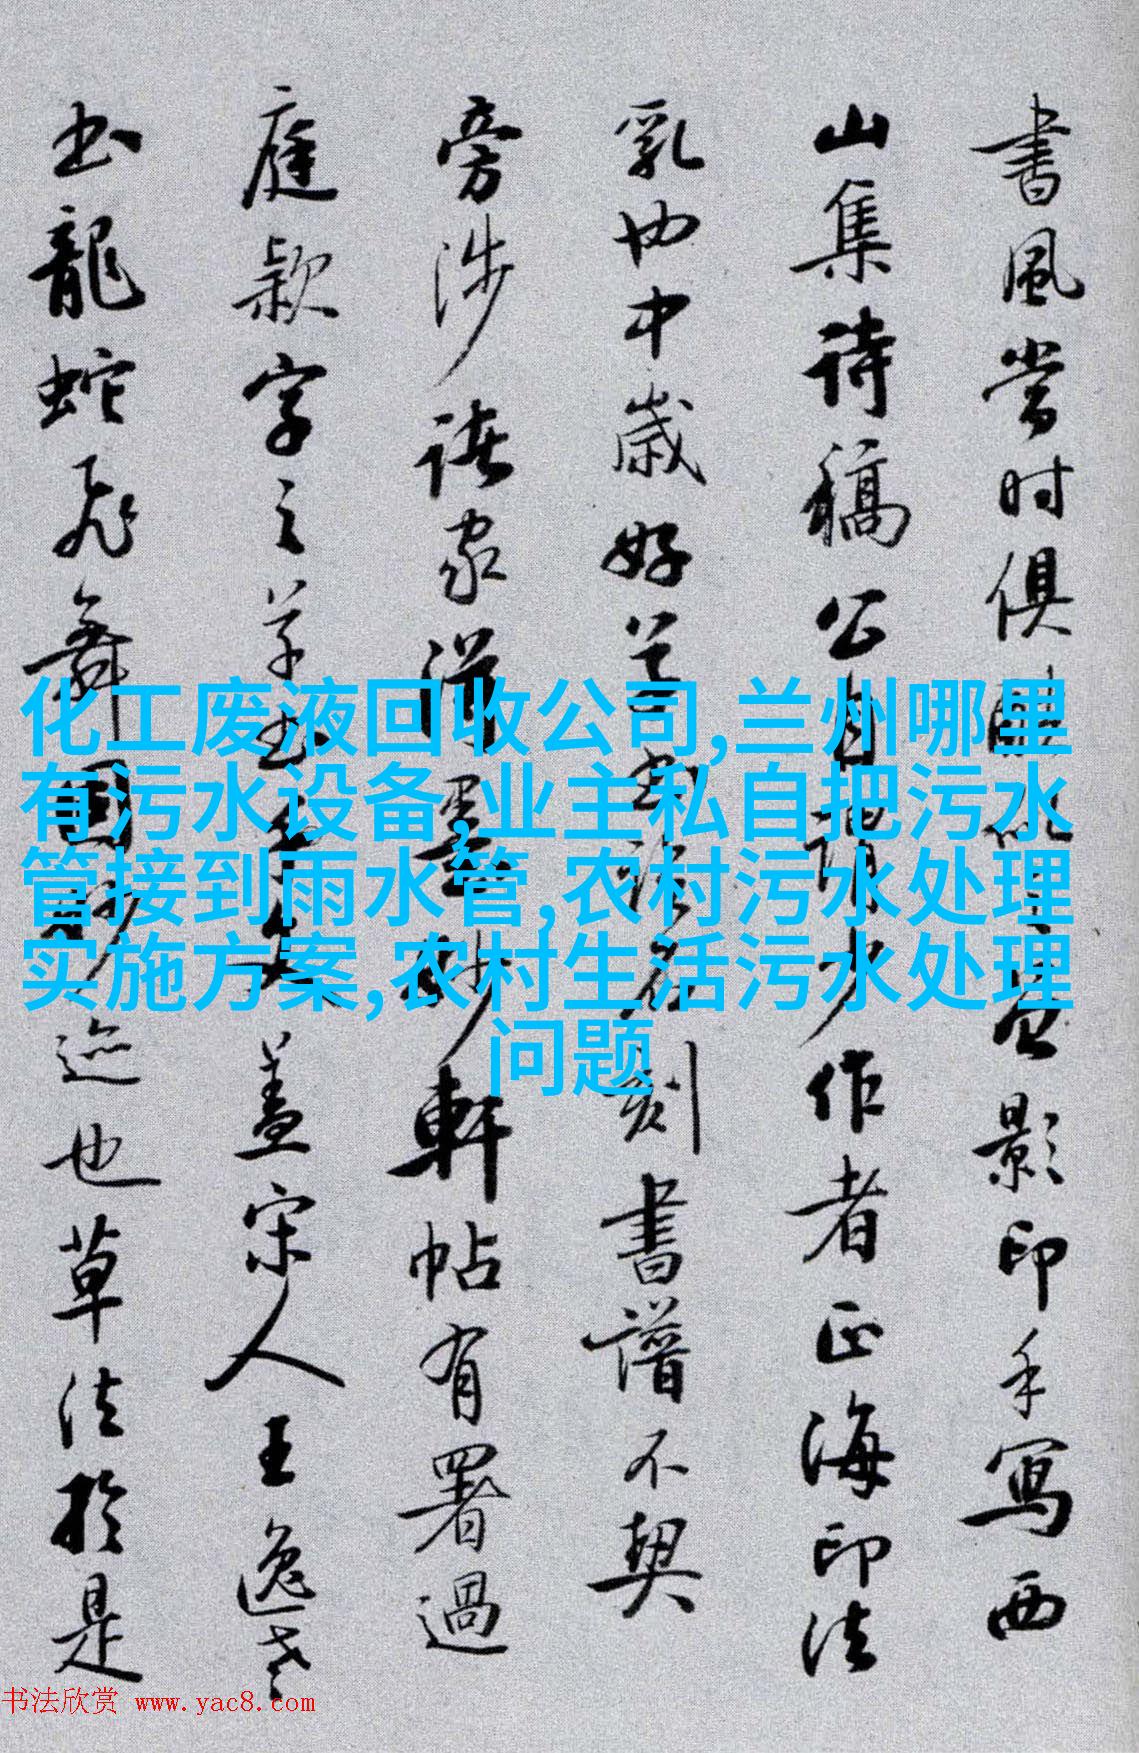 書風时俱影印手寫西
山集诗稿公自少作者正海印法
乳中歲好书刻書譜不契
旁涉诸家得墨妙軒帖有署過
庭款字之草书文蓋宋人王逸老
书龍蛇飛舞固妙迹也草法於是
化工废液回收公司,兰州哪里
有污水设备,业主私自把污水
管接到雨水管,农村污水处理
实施方案,农村生活污水处理
问题
书法欣赏 www.yac8.com